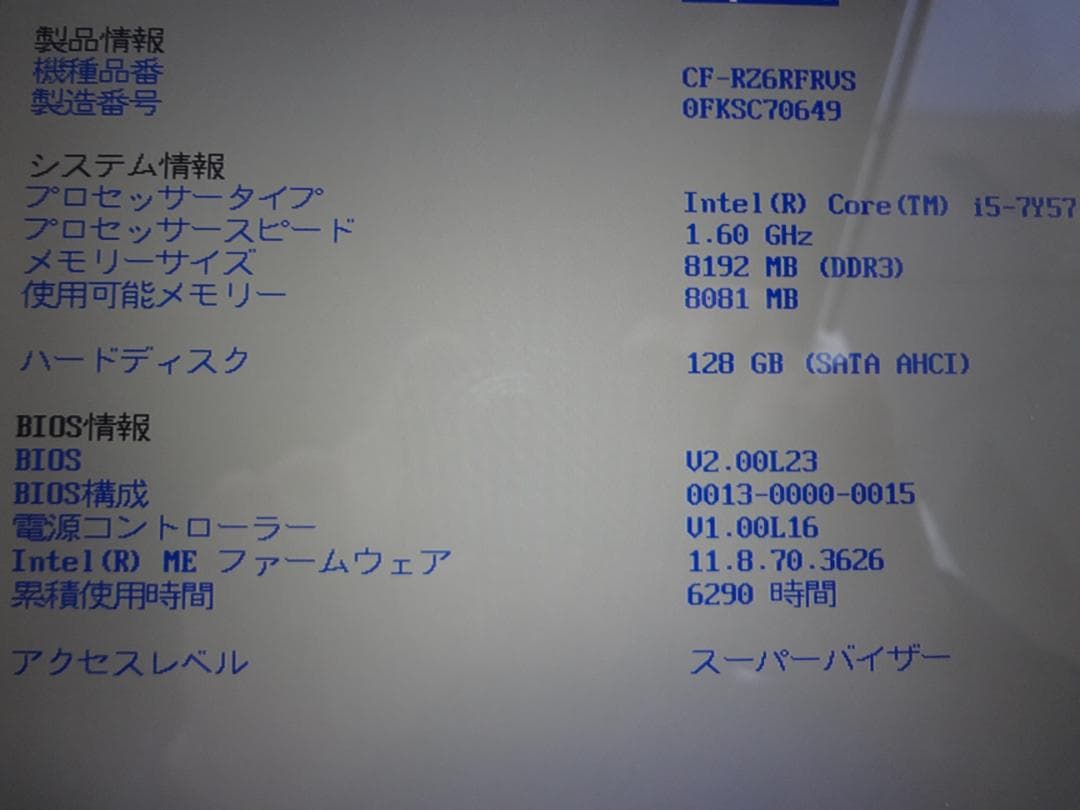 製品情報
機種品番 CF-RZ6RFRVS
製造番号 0FKSC70649
システム情報
プロセッサータイプ Intel(R) Core(TM) i5-7Y57
プロセッサースピード 1.60 GHz
メモリーサイズ 8192 MB (DDR3)
使用可能メモリー 8081 MB
ハードディスク 128 GB (SATA AHCI)
BIOS情報
BIOS V2.00L23
BIOS構成 0013-0000-0015
電源コントローラー V1.00L16
Intel(R) ME ファームウェア 11.8.70.3626
累積使用時間 6290 時間
アクセスレベル スーパーバイザー